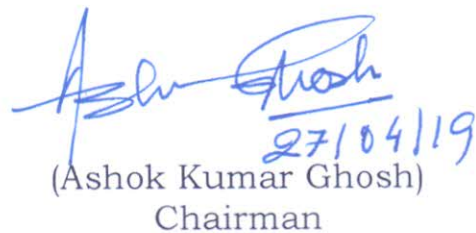 Ashok Ghosh
27/04/19
(Ashok Kumar Ghosh)
Chairman